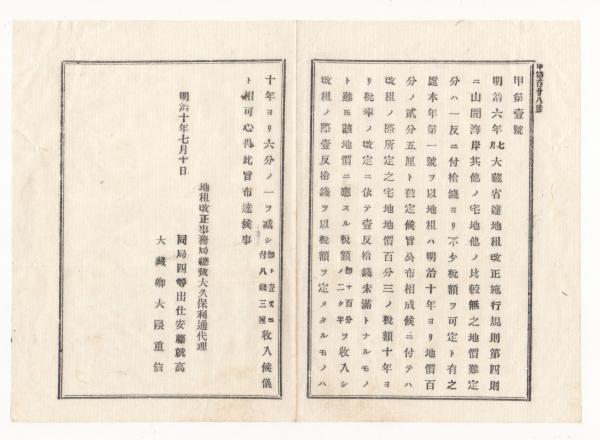 甲第百廿八號
甲第壹號
明治六年七月大藏省達地租改正施行規則第四則
ニ山間海岸其他ノ宅地他ノ比較無之地價難定
分ハ一反ニ付拾錢ヨリ不少税額ヲ可定ト有之
處本年第一號ヲ以地租ハ明治十年ヨリ地價百
分ノ貳分五厘ト勘定候旨公布相成候ニ付テハ
改租ノ際所定之宅地地價百分三ノ税額十年ヨ
リ税率ノ改定ニ依テ壹反拾錢未滿トナルモノ
ト雖モ該地價ニ應スル税額ノ二タ半百分ヲ收入シ
改租ノ際壹反拾錢ヲ以税額ヲ定メタルモノハ
十年ヨリ六分ノ一ヲ減シ壹反ニ付八錢三厘收入候儀
ト相可心得此旨布達候事
明治十年七月十日
地租改正事務局總裁大久保利通代理
同局四等出仕安藤就高
大藏卿大隈重信